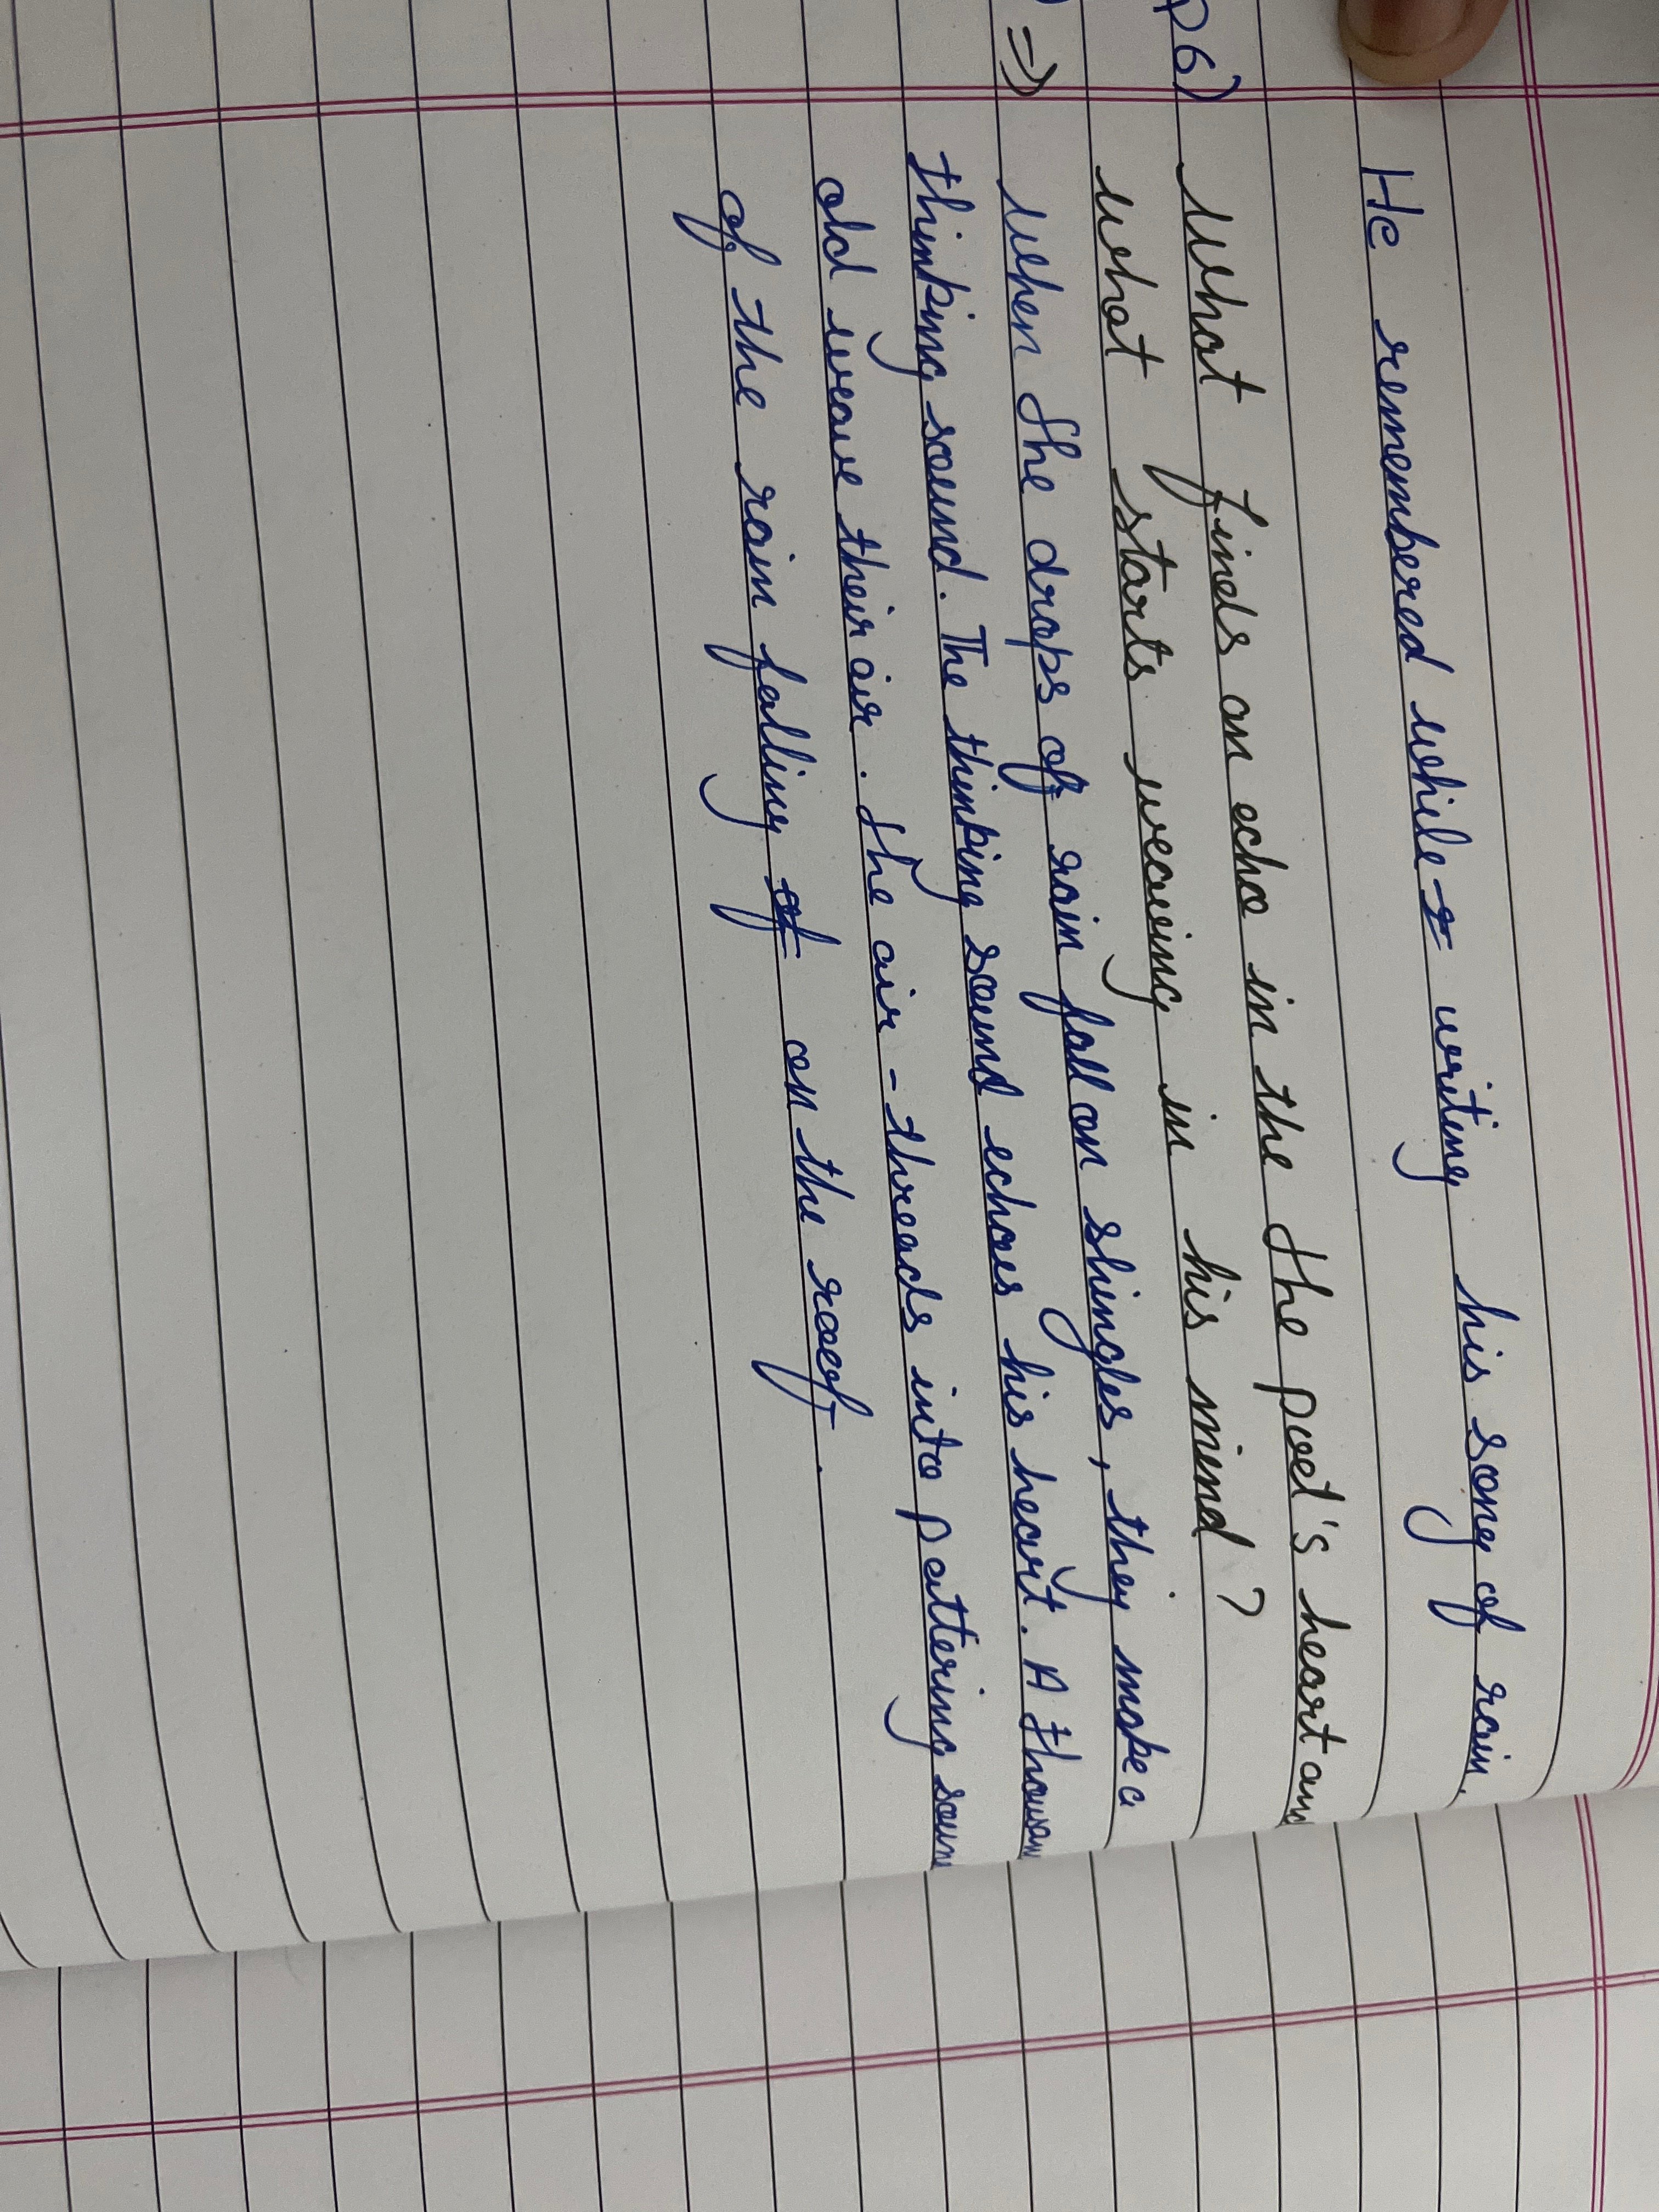 He remembered while writing his song of rain.
Q6) What finds an echo in the the poet's heart and
what starts weaving in his mind?
=> when the drops of rain fall on shingles, they make a
thinking sound. The thinking sound echoes his heart. A thousan
old weave their air. The air-threads into pattering soun
of the rain falling of on the roof.